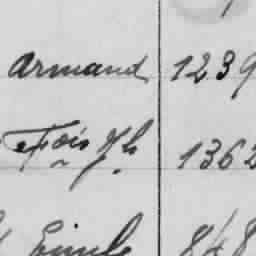 Armand 1239
Fois Jh 1362
Emile 848